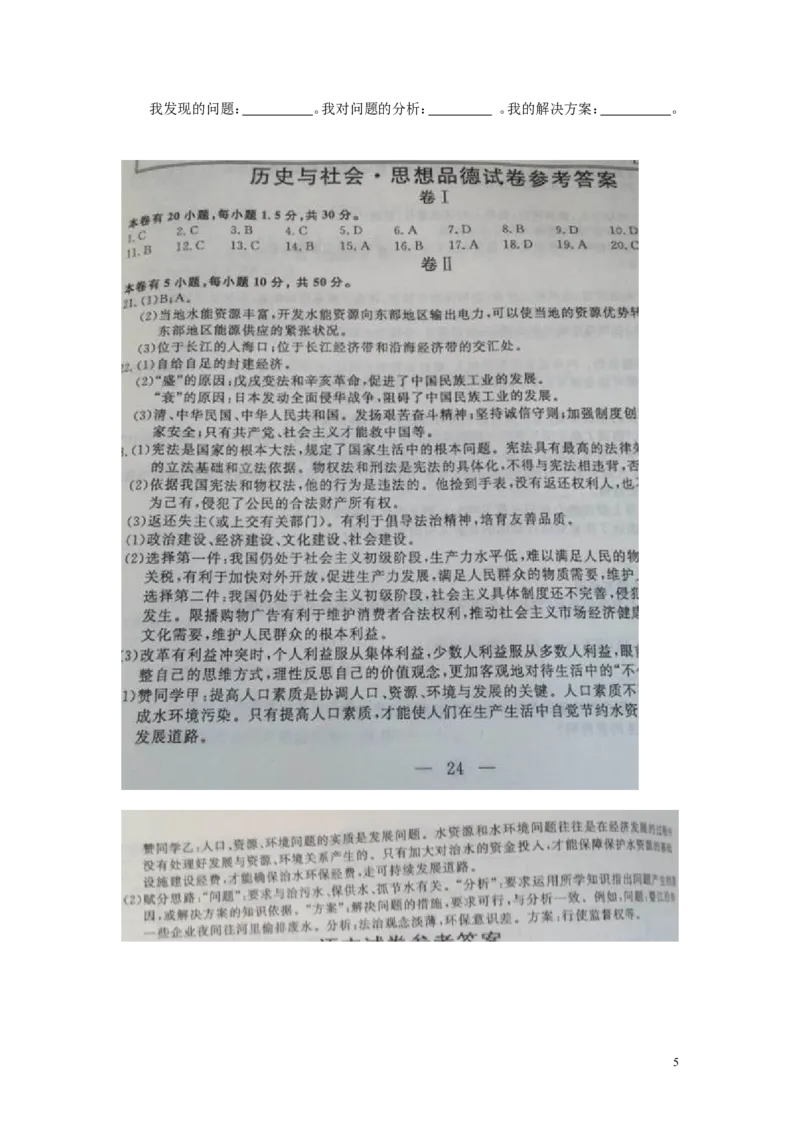 我发现的问题：__________。我对问题的分析：_________ 。我的解决方案：__________。
历史与社会·思想品德试卷参考答案
卷Ⅰ
本卷有20小题,每小题1.5分,共30分。
1.C 2.C 3.B 4.C 5.D 6.A 7.D 8.B 9.D 10.D
11.B 12.C 13.C 14.B 15.A 16.B 17.A 18.D 19.A 20.C
卷Ⅱ
本卷有5小题,每小题10分,共50分。
21.(1)B;A。
(2)当地水能资源丰富,开发水能资源向东部地区输出电力,可以使当地的资源优势转
东部地区能源供应的紧张状况。
(3)位于长江的入海口;位于长江经济带和沿海经济带的交汇处。
22.(1)自给自足的封建经济。
(2)“盛”的原因:戊戌变法和辛亥革命,促进了中国民族工业的发展。
“衰”的原因:日本发动全面侵华战争,阻碍了中国民族工业的发展。
(3)清、中华民国、中华人民共和国。发扬艰苦奋斗精神;坚持诚信守则;加强制度创
家安全;只有共产党、社会主义才能救中国等。
3.(1)宪法是国家的根本大法,规定了国家生活中的根本问题。宪法具有最高的法律效
的立法基础和立法依据。物权法和刑法是宪法的具体化,不得与宪法相违背,否
(2)依据我国宪法和物权法,他的行为是违法的。他捡到手表,没有返还权利人,也不
为己有,侵犯了公民的合法财产所有权。
(3)返还失主(或上交有关部门)。有利于倡导法治精神,培育友善品质。
(1)政治建设、经济建设、文化建设、社会建设。
(2)选择第一件:我国仍处于社会主义初级阶段,生产力水平低,难以满足人民的物
关税,有利于加快对外开放,促进生产力发展,满足人民群众的物质需要,维护
选择第二件:我国仍处于社会主义初级阶段,社会主义具体制度还不完善,侵犯
发生。限播购物广告有利于维护消费者合法权利,推动社会主义市场经济健康
文化需要,维护人民群众的根本利益。
(3)改革有利益冲突时,个人利益服从集体利益,少数人利益服从多数人利益,眼前
整自己的思维方式,理性反思自己的价值观念,更加客观地对待生活中的“不
1)赞同学甲:提高人口素质是协调人口、资源、环境与发展的关键。人口素质不
成水环境污染。只有提高人口素质,才能使人们在生产生活中自觉节约水资
发展道路。
— 24 —
赞同学乙:人口、资源、环境问题的实质是发展问题。水资源和水环境问题往往是在经济发展的过程中
没有处理好发展与资源、环境关系产生的。只有加大对治水的资金投入,才能保障保护水资源的基础
设施建设经费,才能确保治水环保经费,走可持续发展道路。
(2)赋分思路:“问题”:要求与治污水、保供水、抓节水有关。“分析”:要求运用所学知识指出问题产生的原
因,或解决方案的知识依据。“方案”:解决问题的措施,要求可行,与分析一致。例如,问题:婺江沿岸
一些企业夜间往河里偷排废水。分析:法治观念淡薄,环保意识差。方案:行使监督权等。
5